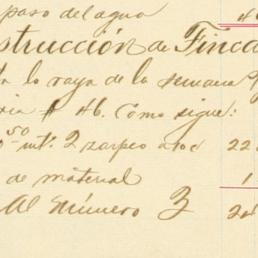 paso del agua
strucción de Finca
la raya de la semana
ria # 46. Como sigue:
50 mt. 2 zarpeo a 22
de material 1
Al Número 3 2